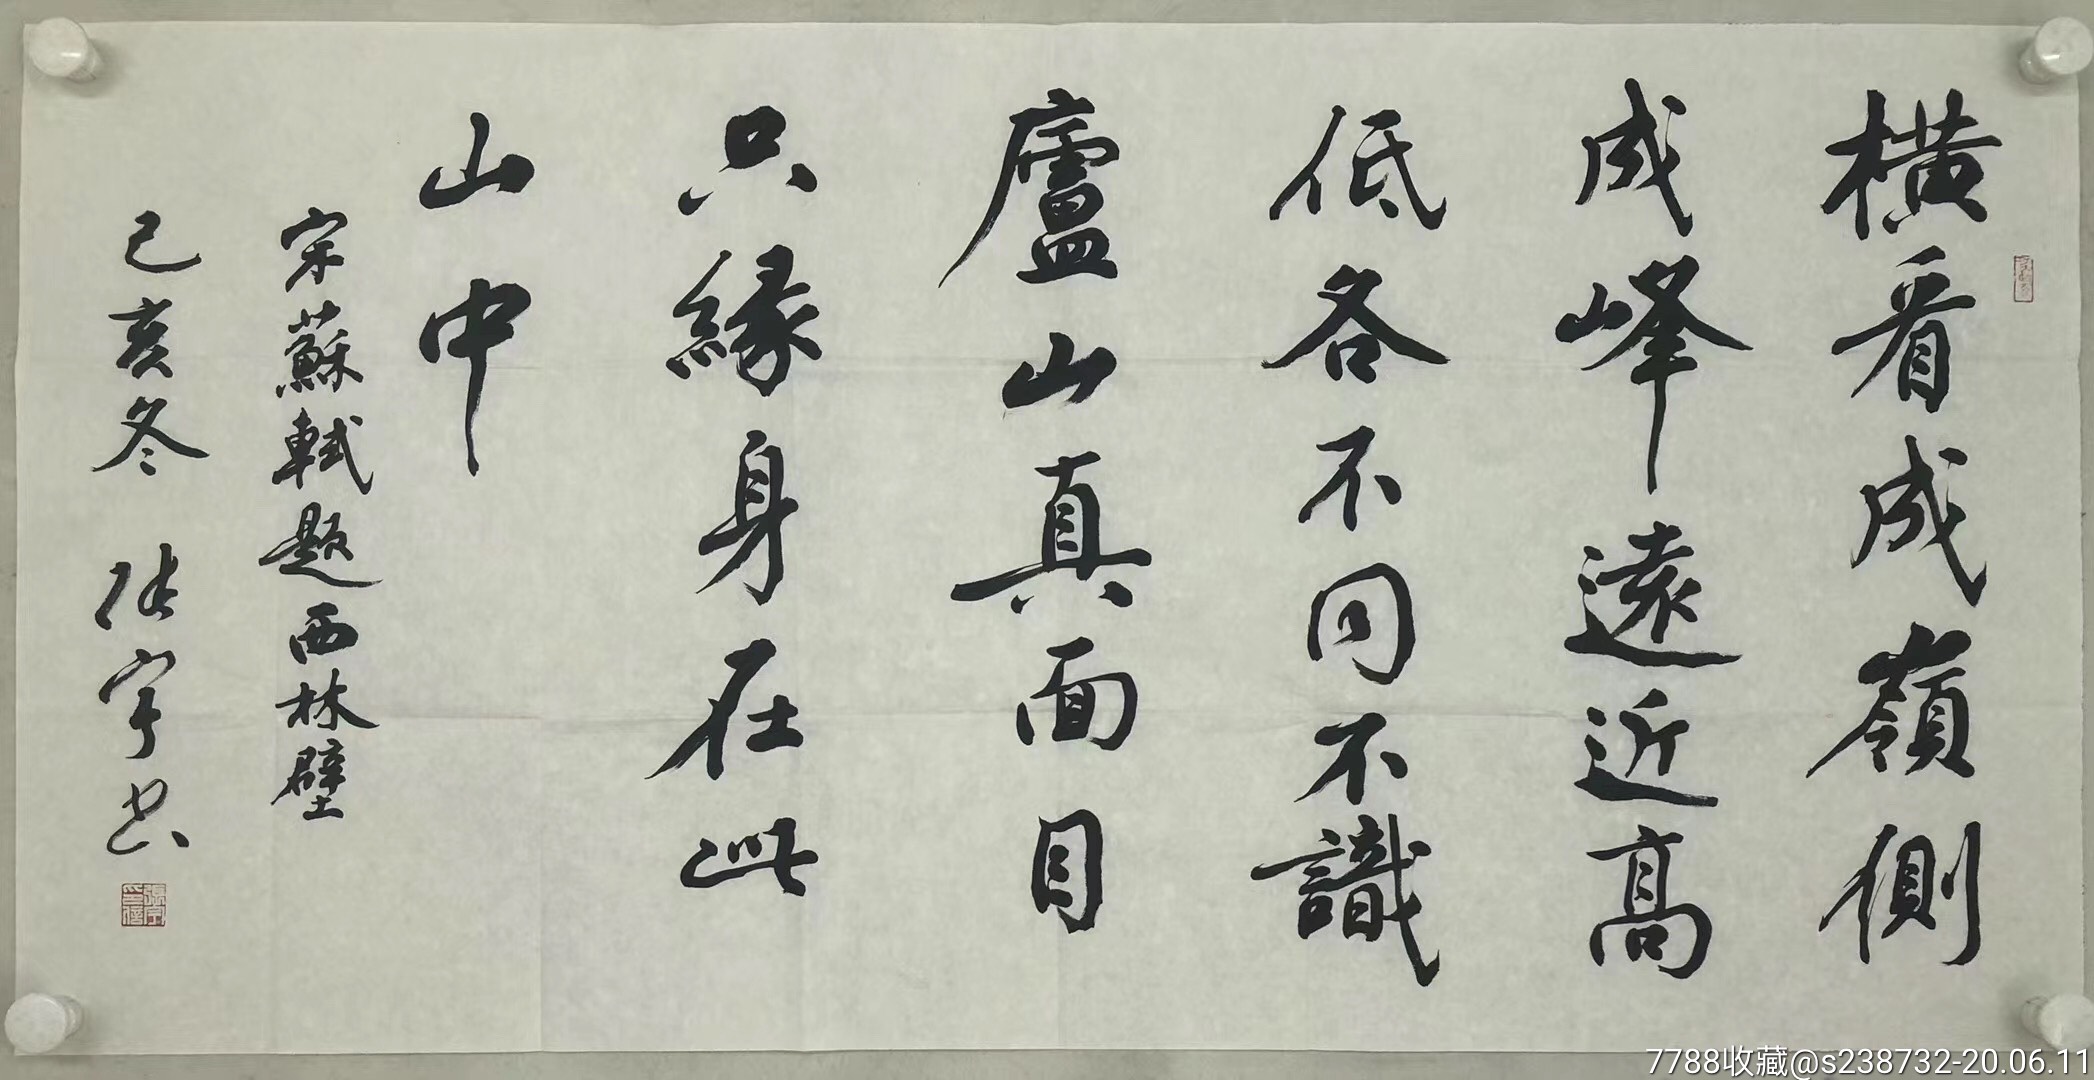 橫看成嶺側
成峰遠近高
低各不同不識
廬山真面目
只緣身在此
山中
宋蘇軾題西林壁
己亥冬 張宇書
張宇印信
7788收藏@s238732-20.06.11